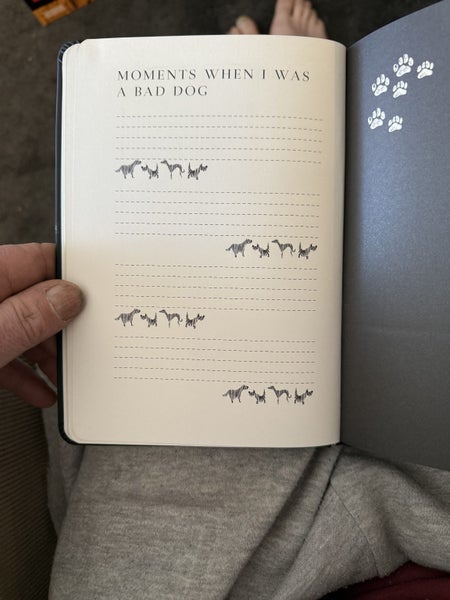 MOMENTS WHEN I WAS
A BAD DOG